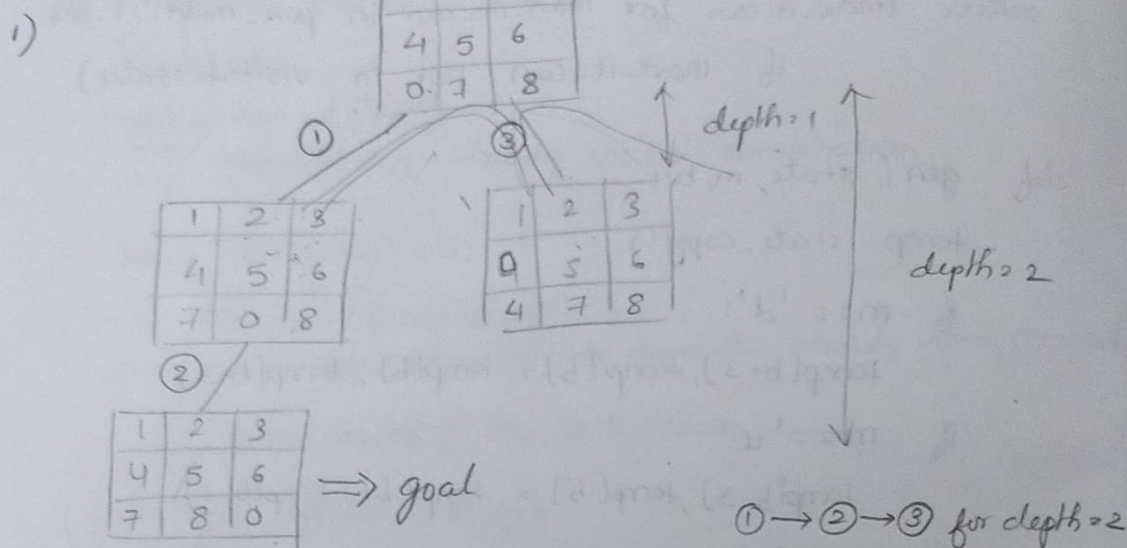 1)
4 5 6
0 7 8
① ③ depth=1
1 2 3
4 5 6
7 0 8
1 2 3
0 5 6
4 7 8
depth=2
②
1 2 3
4 5 6
7 8 0
⇒ goal
①→②→③ for depth=2